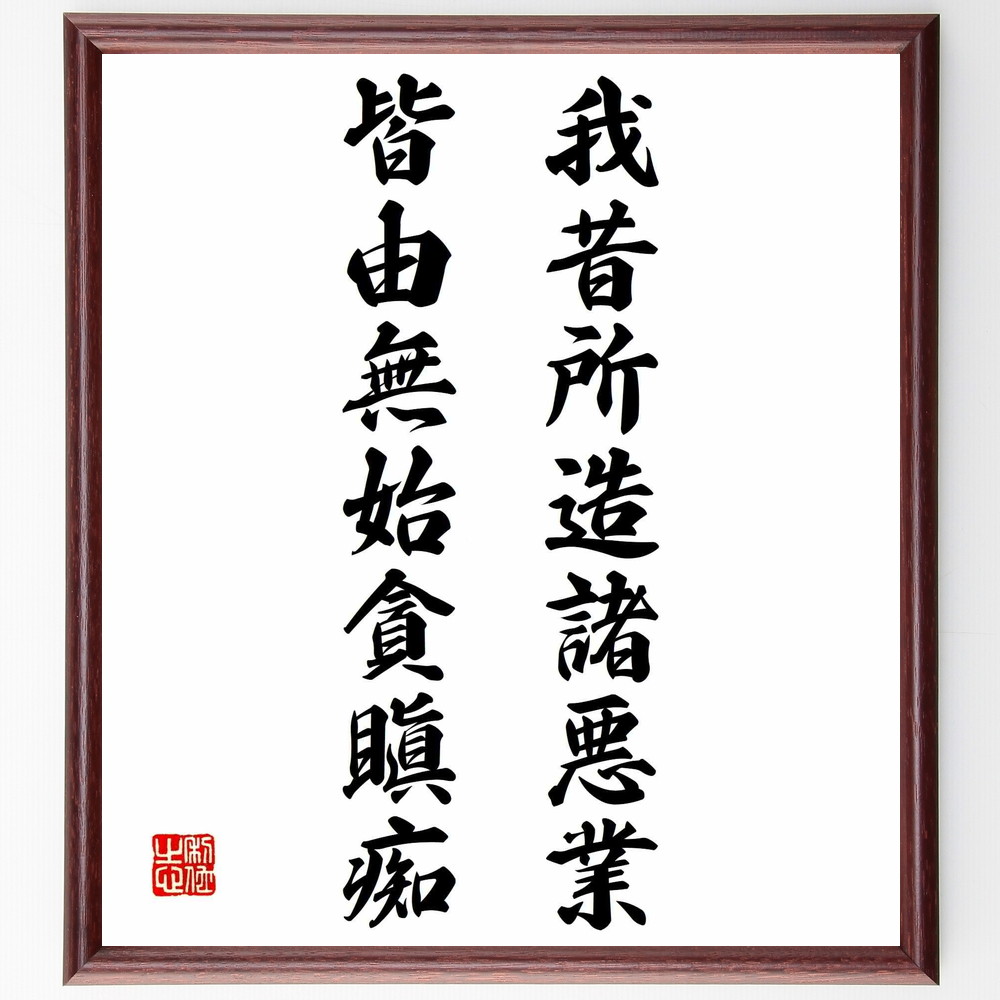 我昔所造諸悪業
皆由無始貪瞋痴